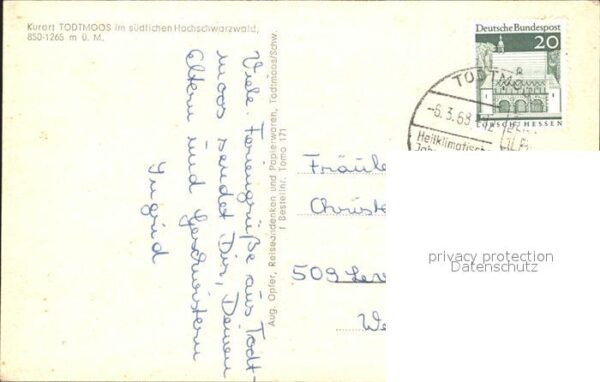 Kurort TODTMOOS im südlichen Hochschwarzwald,
850-1265 m ü. M.
Viele Feriengrüße aus Todt-
moos sendet Dir, Deinen
Eltern und Geschwistern
Ingrid
Aug. Opfer, Reiseandenken und Papierwaren, Todtmoos/Schw.
Bestellnr. Tomo 171
Deutsche Bundespost
20
LORSCH/HESSEN
TODTMO
-6.3.68
Heilklimatisch
Fräule
Christ
509 Lev
We
privacy protection
Datenschutz